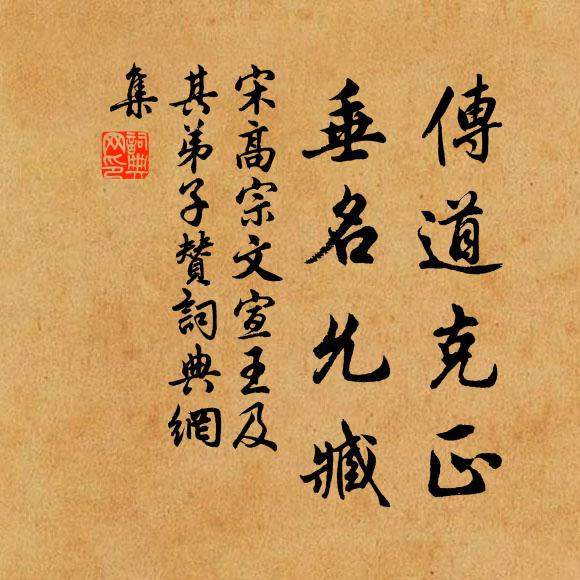 傳道克正
垂名允臧
宋高宗文宣王及
其弟子贊詞典網
集
詞典网印